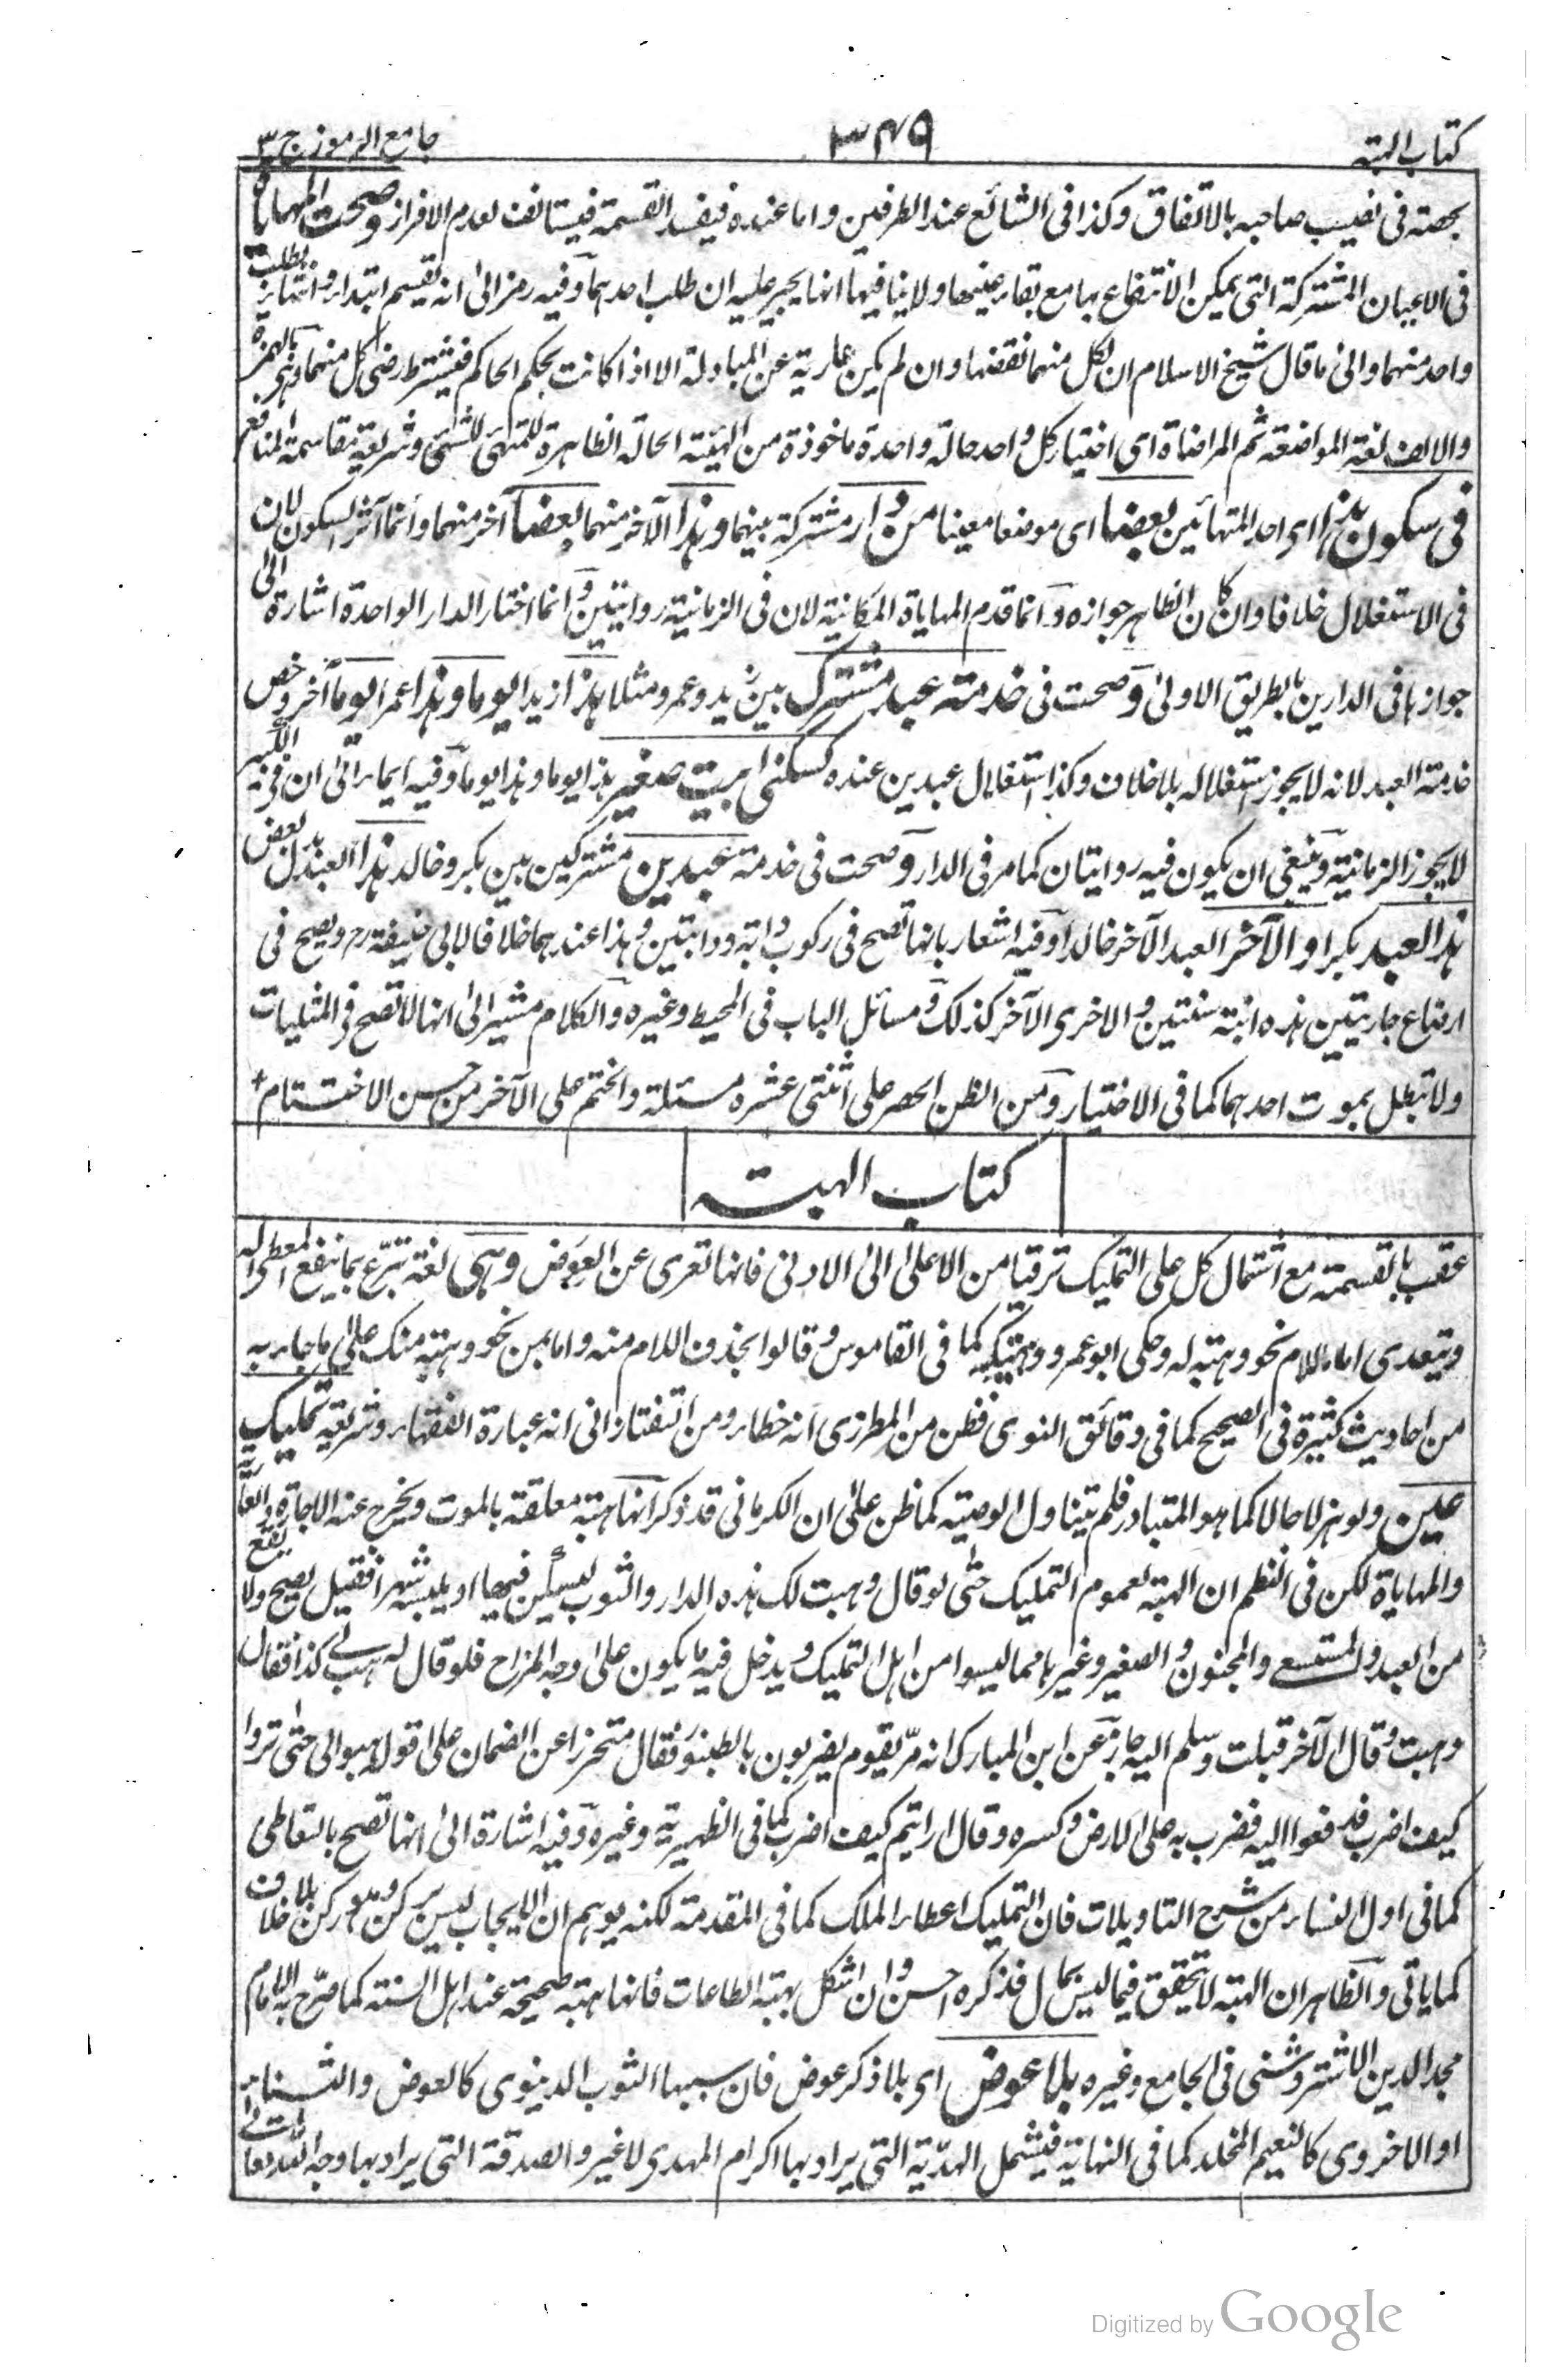 كتاب الهبة
٣٤٩
جامع الرموز ج ٣
بحصته فى نصيب صاحبه بالاتفاق وكذا فى الشائع عند الطرفين واما عنده فيفسد القسمة فيستانف لعدم الافراز وصحت المهاياة
فى الاعيان المشتركة التى يمكن الانتفاع بها مع بقاء عينها ولا ينافيها انها يجبر عليه ان طلب احدهما وفيه رمز الى انه يقسم ابتداء وانتهاء بطلب
واحد منهما والى ما قال شيخ الاسلام ان لكل منهما نقضها وان لم يكن عارية عن المبادلة الا اذا كانت بحكم الحاكم فيشترط رضى كل منهما وهى بالهمزة
والالف لغة المواضعة ثم المراضاة اى اختيار كل واحد حالة واحدة ماخوذة من الهيئة الحالة الظاهرة للمتهيئ للشئ وشريعة مقاسمة المنافع
فى سكون هذا اى احد المتهائين بعضا اى موضعا معينا من دار مشتركة بينهما وهذا الآخر منهما بعضا آخر منهما وانما آثر السكون لان
فى الاستغلال خلافا وان كان الظاهر جوازه وانما قدم المهاياة المكانية لان فى الزمانية روايتين وانما اختار الدار الواحدة اشارة الى
جوازها فى الدارين بالطريق الاولى وصحت فى خدمة عبد مشترك بين زيد وعمرو مثلا هذا زيدا يوما وهذا عمرا يوما آخر وخص
خدمة العبد لانه لا يجوز استغلاله بلا خلاف وكذا استغلال عبدين عنده كسكنى بيت صغير هذا يوما وهذا يوما وفيه ايماء الى ان فى الكبير
لا يجوز الزمانية وينبغى ان يكون فيه روايتان كما مر فى الدار وصحت فى خدمة عبدين مشتركين بين بكر وخالد هذا العبد بدل بعض
هذا العبد بكرا والآخر العبد الآخر خالدا وفيه اشعار بانها تصح فى ركوب دابة ودابتين وهذا عندهما خلافا لابى حنيفة رح ويصح فى
ارضاع جاريتين هذه ابنه سنتين والاخرى الآخر كذلك ومسائل الباب فى المحيط وغيره والكلام مشير الى انها لا تصح فى المثليات
ولا تبطل بموت احدهما كما فى الاختيار ومن الظن الحصر على اثنتى عشرة مسئلة والختم على الآخر من حسن الاختتام +
كتاب الهبة
عقب بالقسمة مع اشتمال كل على التمليك ترقيا من الاعلى الى الادنى فانها تعرى عن العوض وهى لغة تبرع بما ينفع المعطى له
ويتعدى اما باللام نحو وهبته له وحكى ابو عمرو وهبتكه كما فى القاموس وقالوا بحذف اللام منه واما بمن نحو وهبته منك على ما جاء به
من احاديث كثيرة فى الصحيح كما فى دقائق النووى فظن من المطرزى انه خطاء ومن التفتازانى انه عبارة الفقهاء وشريعة تمليك
عين ولو هزلا حالا كما هو المتبادر فلم يتناول الوصية كما ظن على ان الكرمانى قد ذكر انها هبة معلقة بالموت ويخرج عنه الاجارة والعارية
والمهاياة لكن فى النظم ان الهبة لعموم التمليك حتى لو قال وهبت لك هذه الدار والثوب ليسكن فيها او يلبسه شهرا فقبل يصح ولا يقع
من العبد والمستسعى والمجنون والصغير وغيرها مما ليسوا من اهل التمليك ويدخل فيه ما يكون على وجه المزاح فلو قال له هب لى كذا فقال
وهبت وقال الآخر قبلت وسلم اليه جاز عن ابن المبارك انه مر بقوم يضربون بالطنبور فقال متحرزا عن الضمان على قوله هبوا لى حتى تروا
كيف اضرب فدفعوا اليه فضرب به على الارض وكسره وقال ارايتم كيف اضرب كما فى الظهيرية وغيره وفيه اشارة الى انها تصح بالتعاطى
كما فى اول النساء من شرح التاويلات فان التمليك اعطاء الملك كما فى المقدمة لكنه يوهم ان الايجاب ليس بركن وهو ركن بلا خلاف
كما ياتى والظاهر ان الهبة لا تحقق فيما ليس بمال فذكره احسن وان اشكل بهبة الطاعات فانها هبة صحيحة عند اهل السنة كما صرح به الامام
مجد الدين الاشتروشنى فى الجامع وغيره بلا عوض اى بلا ذكر عوض فان سببها الثوب الدينوى كالعوض والثناء
او الاخروى كالنعيم المخلد كما فى النهاية فيشمل الهدية التى يراد بها اكرام المهدى لا غير والصدقة التى يراد بها وجه الله تعالى
Digitized by Google